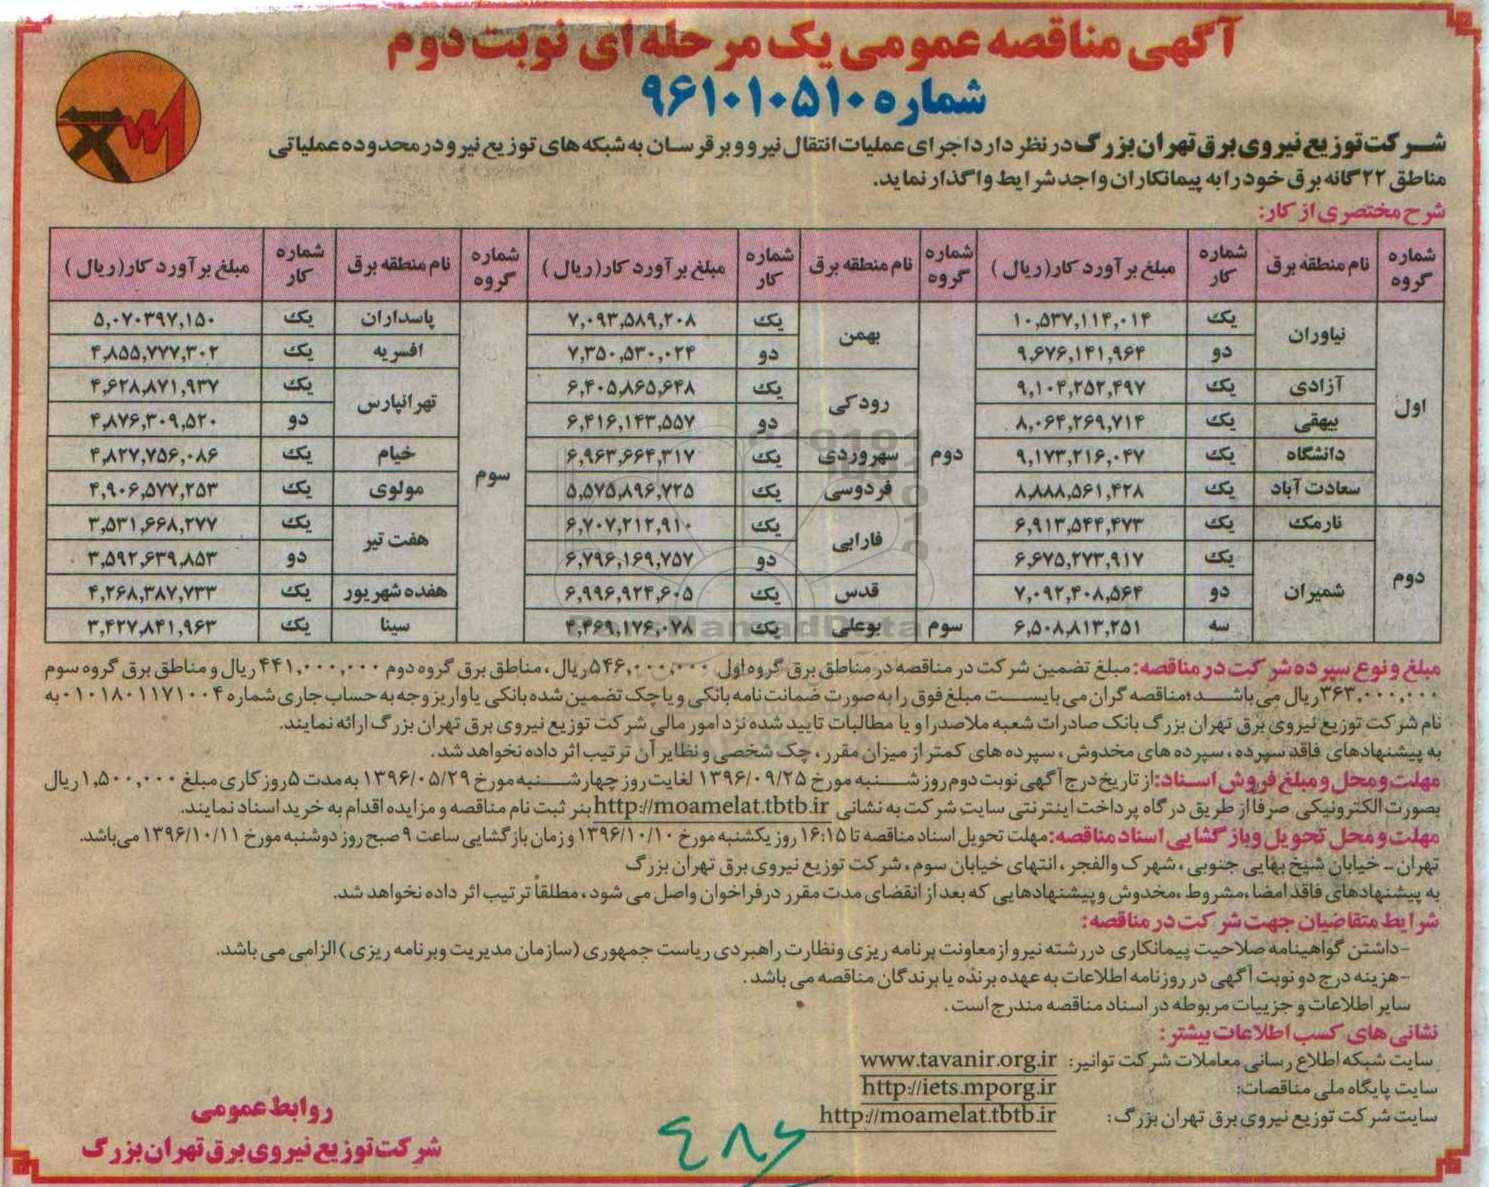 آگهی مناقصه عمومی یک مرحله ای نوبت دوم
شماره ۹۶۱۰۱۰۵۱۰
شرکت توزیع نیروی برق تهران بزرگ در نظر دارد اجرای عملیات انتقال نیرو و برقرسان به شبکه های توزیع نیرو در محدوده عملیاتی
مناطق ۲۲ گانه برق خود را به پیمانکاران واجد شرایط واگذار نماید.
شرح مختصری از کار:
شماره گروه | نام منطقه برق | شماره کار | مبلغ برآورد کار (ریال) | شماره گروه | نام منطقه برق | شماره کار | مبلغ برآورد کار (ریال) | شماره گروه | نام منطقه برق | شماره کار | مبلغ برآورد کار (ریال)
اول | نیاوران | یک | ۱۰,۵۳۷,۱۱۴,۰۱۴ | دوم | بهمن | یک | ۷,۰۹۳,۵۸۹,۲۰۸ | سوم | پاسداران | یک | ۵,۰۷۰۳۹۷,۱۵۰
دو | ۹,۶۷۶,۱۴۱,۹۶۴ | دو | ۷,۳۵۰,۵۳۰,۰۲۴ | افسریه | یک | ۴,۸۵۵,۷۷۷,۳۰۲
آزادی | یک | ۹,۱۰۴,۲۵۲,۴۹۷ | رودکی | یک | ۶,۴۰۵,۸۶۵,۶۴۸ | تهرانپارس | یک | ۴,۶۲۸,۸۷۱,۹۳۷
بیهقی | یک | ۸,۰۶۴,۲۶۹,۷۱۴ | دو | ۶,۴۱۶,۱۴۳,۵۵۷ | دو | ۴,۸۷۶,۳۰۹,۵۲۰
دانشگاه | یک | ۹,۱۷۳,۲۱۶,۰۴۷ | سهروردی | یک | ۶,۹۶۳,۶۶۴,۳۱۷ | خیام | یک | ۴,۸۲۷,۷۵۶,۰۸۶
سعادت آباد | یک | ۸,۸۸۸,۵۶۱,۴۲۸ | فردوسی | یک | ۵,۵۷۵,۸۹۶,۷۲۵ | مولوی | یک | ۴,۹۰۶,۵۷۷,۲۵۳
دوم | نارمک | یک | ۶,۹۱۳,۵۴۴,۴۷۳ | فارابی | یک | ۶,۷۰۷,۲۱۲,۹۱۰ | هفت تیر | یک | ۳,۵۳۱,۶۶۸,۲۷۷
شمیران | یک | ۶,۶۷۵,۲۷۳,۹۱۷ | دو | ۶,۷۹۶,۱۶۹,۷۵۷ | دو | ۳,۵۹۲,۶۳۹,۸۵۳
دو | ۷,۰۹۲,۴۰۸,۵۶۴ | قدس | یک | ۶,۹۹۶,۹۲۴,۶۰۵ | هفده شهریور | یک | ۴,۲۶۸,۳۸۷,۷۳۳
سه | ۶,۵۰۸,۸۱۳,۲۵۱ | سوم | بوعلی | یک | ۴,۴۶۹,۱۷۶,۰۷۸ | سینا | یک | ۳,۴۲۷,۸۴۱,۹۶۳
مبلغ و نوع سپرده شرکت در مناقصه: مبلغ تضمین شرکت در مناقصه در مناطق برق گروه اول ۵۴۶,۰۰۰,۰۰۰ ریال، مناطق برق گروه دوم ۴۴۱,۰۰۰,۰۰۰ ریال و مناطق برق گروه سوم
۳۶۳,۰۰۰,۰۰۰ ریال می باشد؛ مناقصه گران می بایست مبلغ فوق را به صورت ضمانت نامه بانکی و یا چک تضمین شده بانکی یا واریز وجه به حساب جاری شماره ۰۱۰۱۸۰۱۱۷۱۰۰۴ به
نام شرکت توزیع نیروی برق تهران بزرگ بانک صادرات شعبه ملاصدرا و یا مطالبات تایید شده نزد امور مالی شرکت توزیع نیروی برق تهران بزرگ ارائه نمایند.
به پیشنهادهای فاقد سپرده، سپرده های مخدوش، سپرده های کمتر از میزان مقرر، چک شخصی و نظایر آن ترتیب اثر داده نخواهد شد.
مهلت و محل و مبلغ فروش اسناد: از تاریخ درج آگهی نوبت دوم روز شنبه مورخ ۱۳۹۶/۰۹/۲۵ لغایت روز چهارشنبه مورخ ۱۳۹۶/۰۵/۲۹ به مدت ۵ روز کاری مبلغ ۱,۵۰۰,۰۰۰ ریال
بصورت الکترونیکی صرفا از طریق درگاه پرداخت اینترنتی سایت شرکت به نشانی http://moamelat.tbtb.ir بنر ثبت نام مناقصه و مزایده اقدام به خرید اسناد نمایند.
مهلت و محل تحویل و بازگشایی اسناد مناقصه: مهلت تحویل اسناد مناقصه تا ۱۶:۱۵ روز یکشنبه مورخ ۱۳۹۶/۱۰/۱۰ و زمان بازگشایی ساعت ۹ صبح روز دوشنبه مورخ ۱۳۹۶/۱۰/۱۱ می باشد.
تهران - خیابان شیخ بهایی جنوبی، شهرک والفجر، انتهای خیابان سوم، شرکت توزیع نیروی برق تهران بزرگ
به پیشنهادهای فاقد امضا، مشروط، مخدوش و پیشنهادهایی که بعد از انقضای مدت مقرر در فراخوان واصل می شود، مطلقاً ترتیب اثر داده نخواهد شد.
شرایط متقاضیان جهت شرکت در مناقصه:
-داشتن گواهینامه صلاحیت پیمانکاری در رشته نیرو از معاونت برنامه ریزی و نظارت راهبردی ریاست جمهوری (سازمان مدیریت و برنامه ریزی) الزامی می باشد.
-هزینه درج دو نوبت آگهی در روزنامه اطلاعات به عهده برنده یا برندگان مناقصه می باشد.
سایر اطلاعات و جزییات مربوطه در اسناد مناقصه مندرج است.
نشانی های کسب اطلاعات بیشتر:
سایت شبکه اطلاع رسانی معاملات شرکت توانیر: www.tavanir.org.ir
سایت پایگاه ملی مناقصات: http://iets.mporg.ir
سایت شرکت توزیع نیروی برق تهران بزرگ: http://moamelat.tbtb.ir
روابط عمومی
شرکت توزیع نیروی برق تهران بزرگ